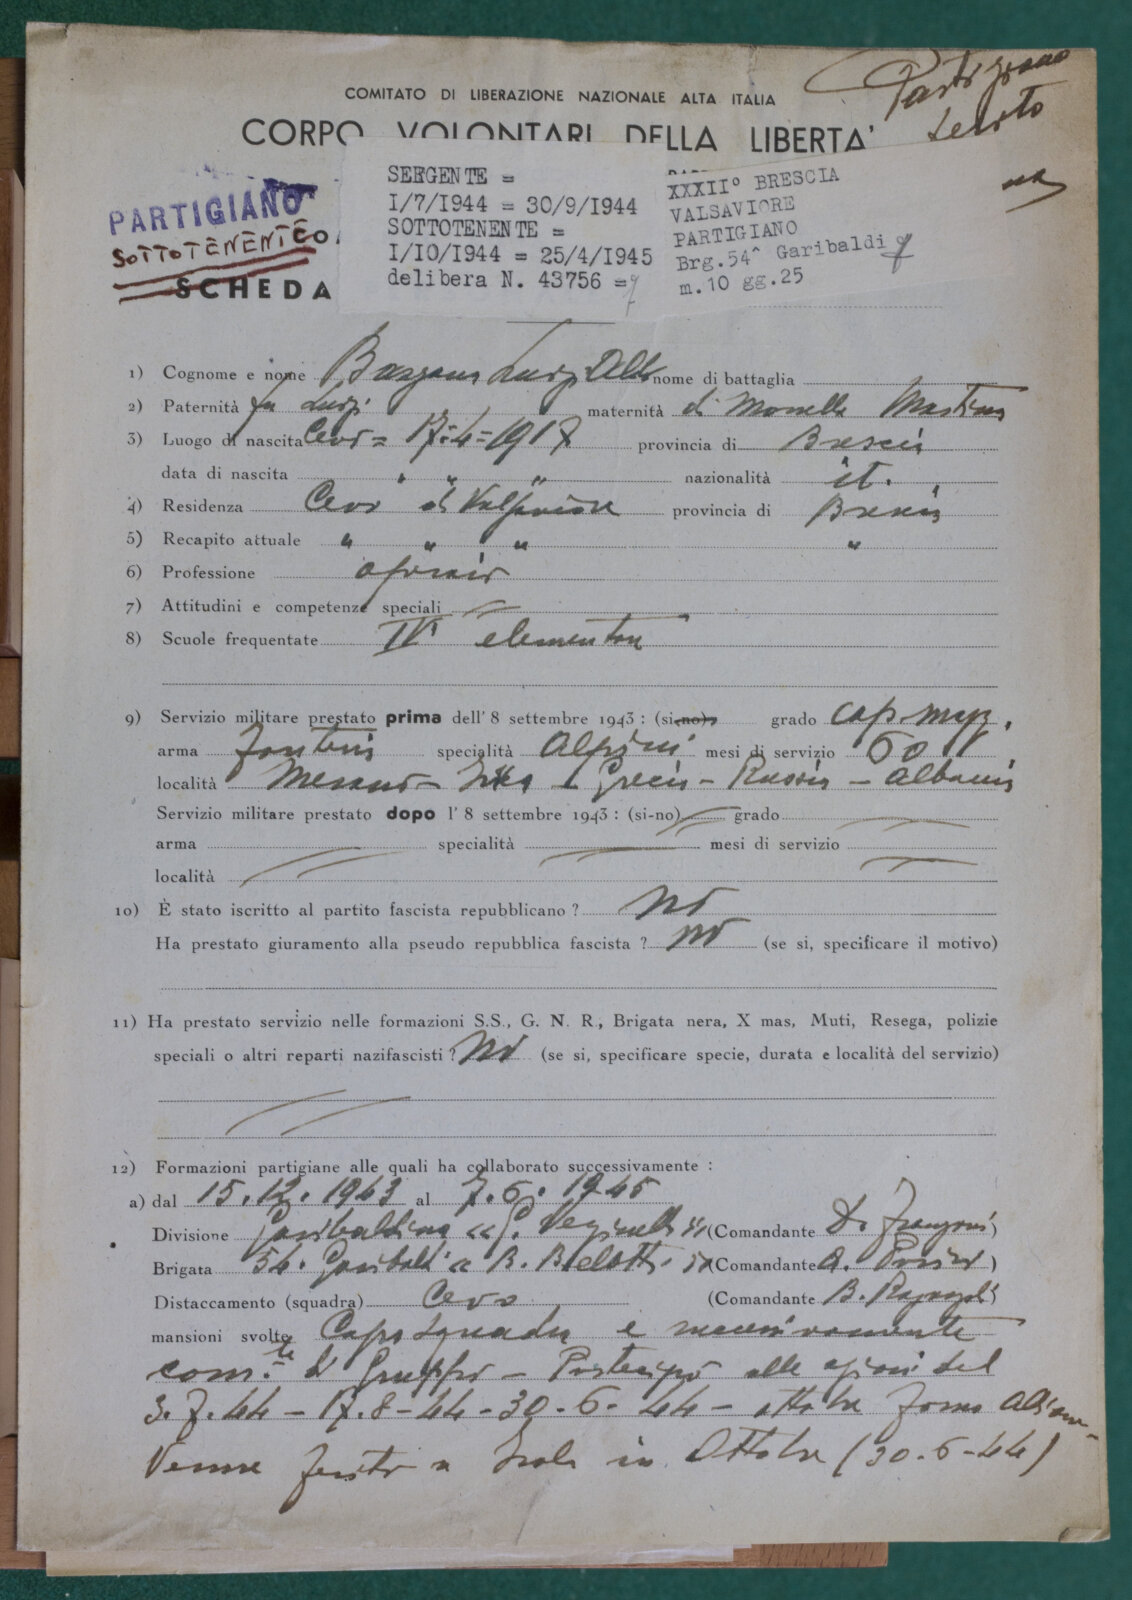 Partigiano
ferito
COMITATO DI LIBERAZIONE NAZIONALE ALTA ITALIA
CORPO VOLONTARI DELLA LIBERTA'
PARTIGIANO
SOTTOTENENTE
SCHEDA
SERGENTE =
I/7/1944 = 30/9/1944
SOTTOTENENTE =
I/IO/1944 = 25/4/1945
delibera N. 43756 =
XXXII° BRESCIA
VALSAVIORE
PARTIGIANO
Brg.54^ Garibaldi
m.10 gg.25
1) Cognome e nome Luigi nome di battaglia
2) Paternità fu Luigi maternità di Monella Martina
3) Luogo di nascita Cevo = 17=4=1917 provincia di Brescia
data di nascita " " " nazionalità it.
4) Residenza Cevo di Valsaviore provincia di Brescia
5) Recapito attuale " " " "
6) Professione operaio
7) Attitudini e competenze speciali
8) Scuole frequentate IV elementare
9) Servizio militare prestato prima dell' 8 settembre 1943 : (si-no) grado cap. magg.
arma fanteria specialità Alpini mesi di servizio 60
località Merano - - Grecia - Russia - Albania
Servizio militare prestato dopo l' 8 settembre 1943 : (si-no) grado
arma specialità mesi di servizio
località
10) È stato iscritto al partito fascista repubblicano ? no
Ha prestato giuramento alla pseudo repubblica fascista ? no (se si, specificare il motivo)
11) Ha prestato servizio nelle formazioni S.S., G. N. R., Brigata nera, X mas, Muti, Resega, polizie
speciali o altri reparti nazifascisti ? No (se si, specificare specie, durata e località del servizio)
12) Formazioni partigiane alle quali ha collaborato successivamente :
a) dal 15.12.1943 al 7.6.1945
Divisione Garibaldina (Comandante Franzoni)
Brigata 54. Garibaldi " B. Belotti " (Comandante A. )
Distaccamento (squadra) Cevo (Comandante B. Ragazzoli)
mansioni svolte Capo squadra e successivamente
com.te di Gruppo - Partecipò alle azioni del
3.7.44 - 17.8-44 - 30-6-44 - ottobre
Venne ferito a Isola in Ottobre (30-6-44)